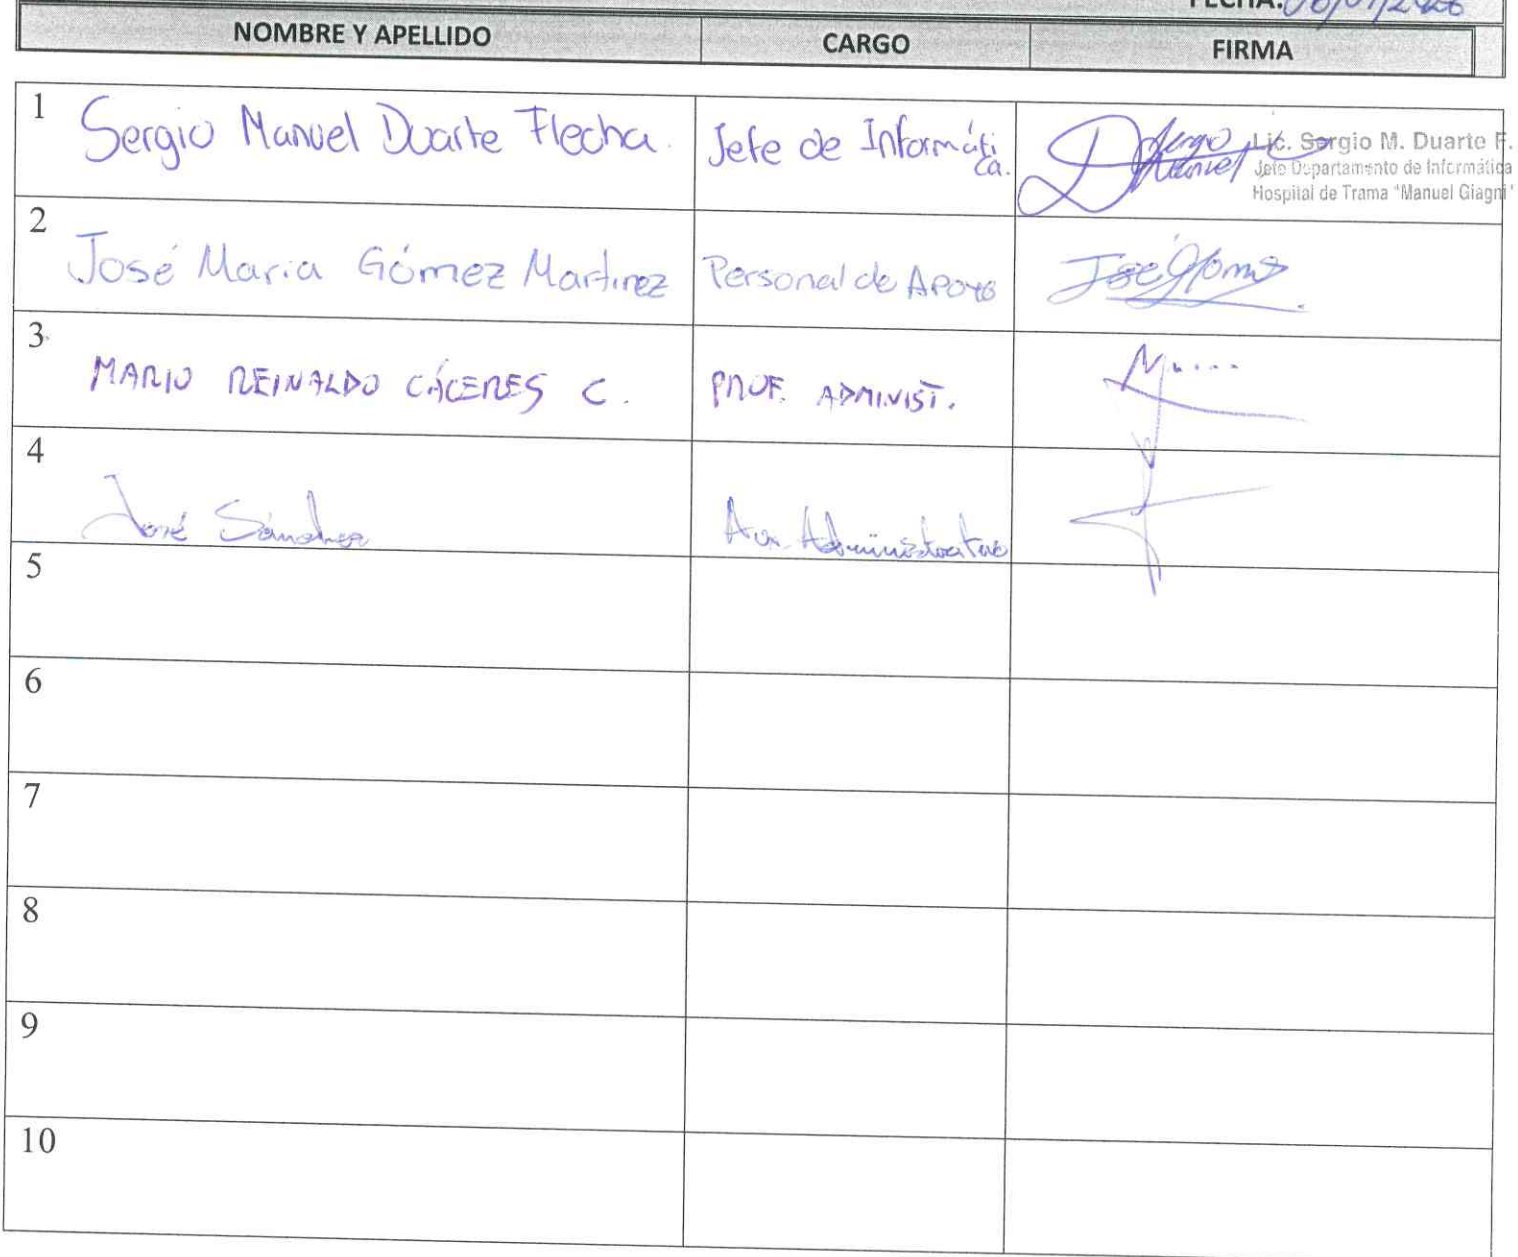 FECHA:
NOMBRE Y APELLIDO CARGO FIRMA
1 Sergio Manuel Duarte Flecha. Jefe de Informática.
Lic. Sergio M. Duarte F.
Jefe Departamento de Informática
Hospital de Trama "Manuel Giagni"
2 José Maria Gómez Martinez Personal de Apoyo
3 MARIO REINALDO CÁCERES C. PROF. ADMINIST.
4 José Sánchez Aux. Administrativo
5
6
7
8
9
10